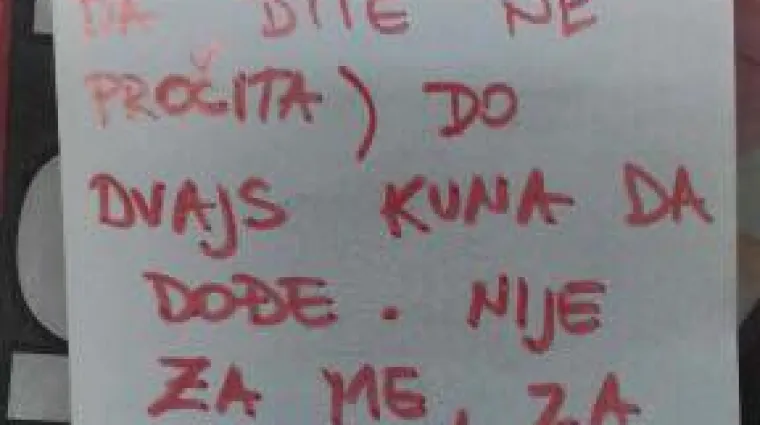 DA DITE NE
PROČITA) DO
DVAJS KUNA DA
DOĐE. NIJE
ZA ME, ZA